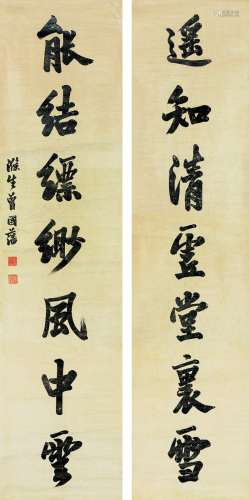 遥知清虗堂裏雪
能結縹緲風中雲
滌生曾國藩